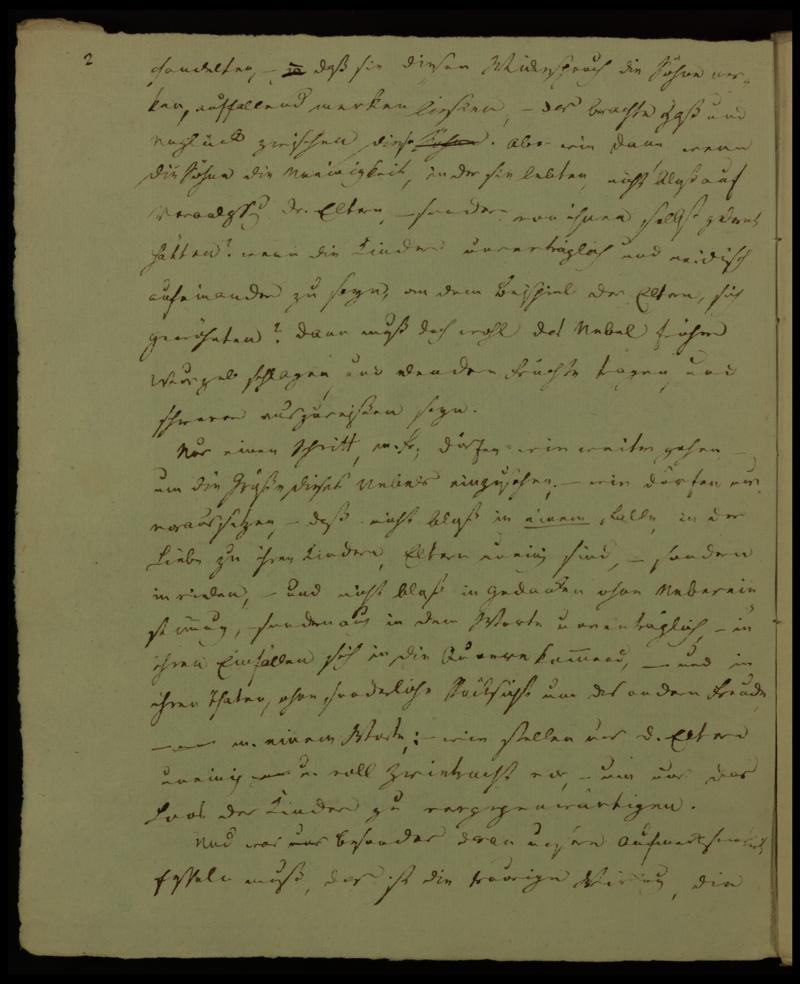 2
handelten, – daß sie diesen Widerspruch die Söhne mer-
ken, auffallend merken ließen, – das brachte Haß und
Unglück zwischen diese Söhne. Aber wie dann wenn
die Söhne die Uneinigkeit, in der sie lebten, nicht bloß auf
der Eltern, – sondern von ihnen selbst gelernt
hätten? wenn die Kinder unverträglich und neidisch
aufeinander zu seyn, an dem Beyspiel der Eltern, sich
gewöhnten? dann muß doch wohl das Uebel frühe
Wurzeln schlagen, und Früchte tragen, und
schwerer auszureißen seyn.
Nur einen Schritt, m. Fr., dürfen wir weiter gehen –
um die Größe dieses Uebels einzusehen; – wir dürfen nur
voraussetzen, – daß nicht bloß in einem Falle, in der
Liebe zu ihren Kindern, Eltern uneinig sind, – sondern
in vielen, – und nicht bloß in Gedanken ohne Ueberein
stimmung, – sondern auch in dem Worte unverträglich, – in
ihren Einfällen sich in die Queere kommend, – und in
ihren Thaten, ohne sonderliche Rücksicht um des andern Freude,
m. einem Worte; – wir stellen uns d. Eltern
uneinig u. voll Zwietracht vor, – um uns das
Loos der Kinder zu vergegenwärtigen.
Und was uns besonders daran unsere Aufmerksamkeit
fesseln muß, das ist die traurige Wirkung, die